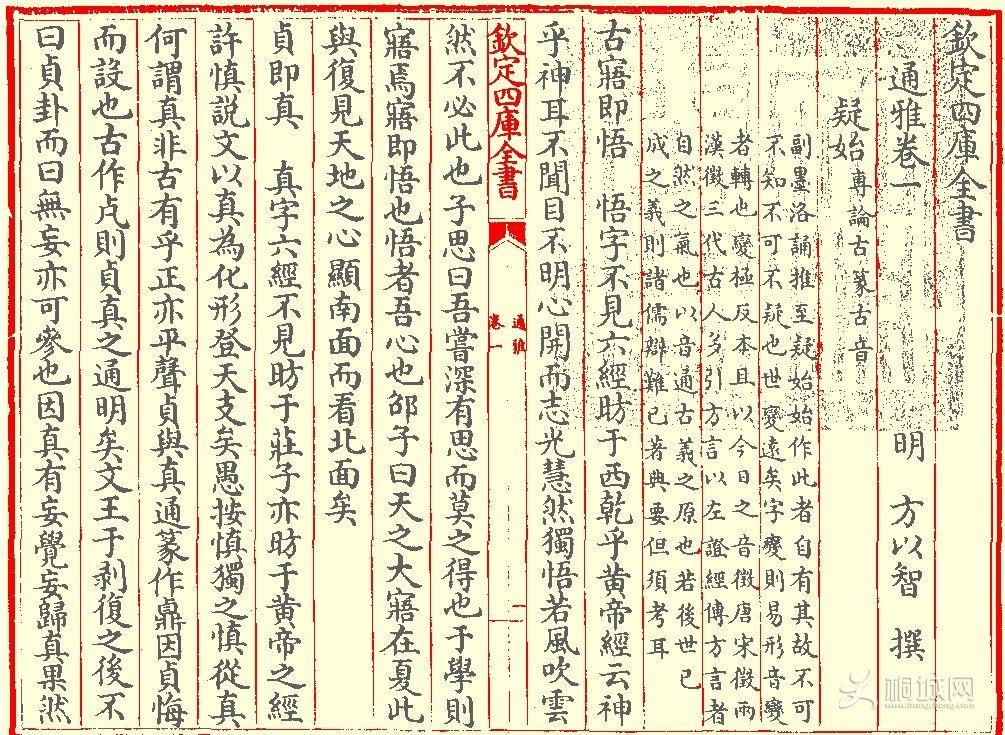 欽定四庫全書
通雅卷一
明 方以智 撰
疑始專論古篆古音
副墨洛誦推至疑始始作此者自有其故不可
不知不可不疑也世變遠矣字變則易形音變
者轉也變極反本且以今日之音徵唐宋徵兩
漢徵三代古人多引方言以左證經傳方言者
自然之氣也以音通古義之原也若後世已
成之義則諸儒辯難已著典要但須考耳
古寤即悟 悟字不見六經昉于西乾乎黄帝經云神
乎神耳不聞目不明心開而志光慧然獨悟若風吹雲
欽定四庫全書
通雅
卷一
一
然不必此也子思曰吾嘗深有思而莫之得也于學則
寤焉寤即悟也悟者吾心也邵子曰天之大寤在夏此
與復見天地之心顯南面而看北面矣
貞即真 真字六經不見昉于莊子亦昉于黄帝之經
許慎説文以真為化形登天支矣愚按慎獨之慎從真
何謂真非古有乎正亦平聲貞與真通篆作鼑因貞悔
而設也古作𠂈則貞真之通明矣文王于剥復之後不
曰貞卦而曰無妄亦可參也因真有妄覺妄歸真果然
桐城网
itongcheng.com